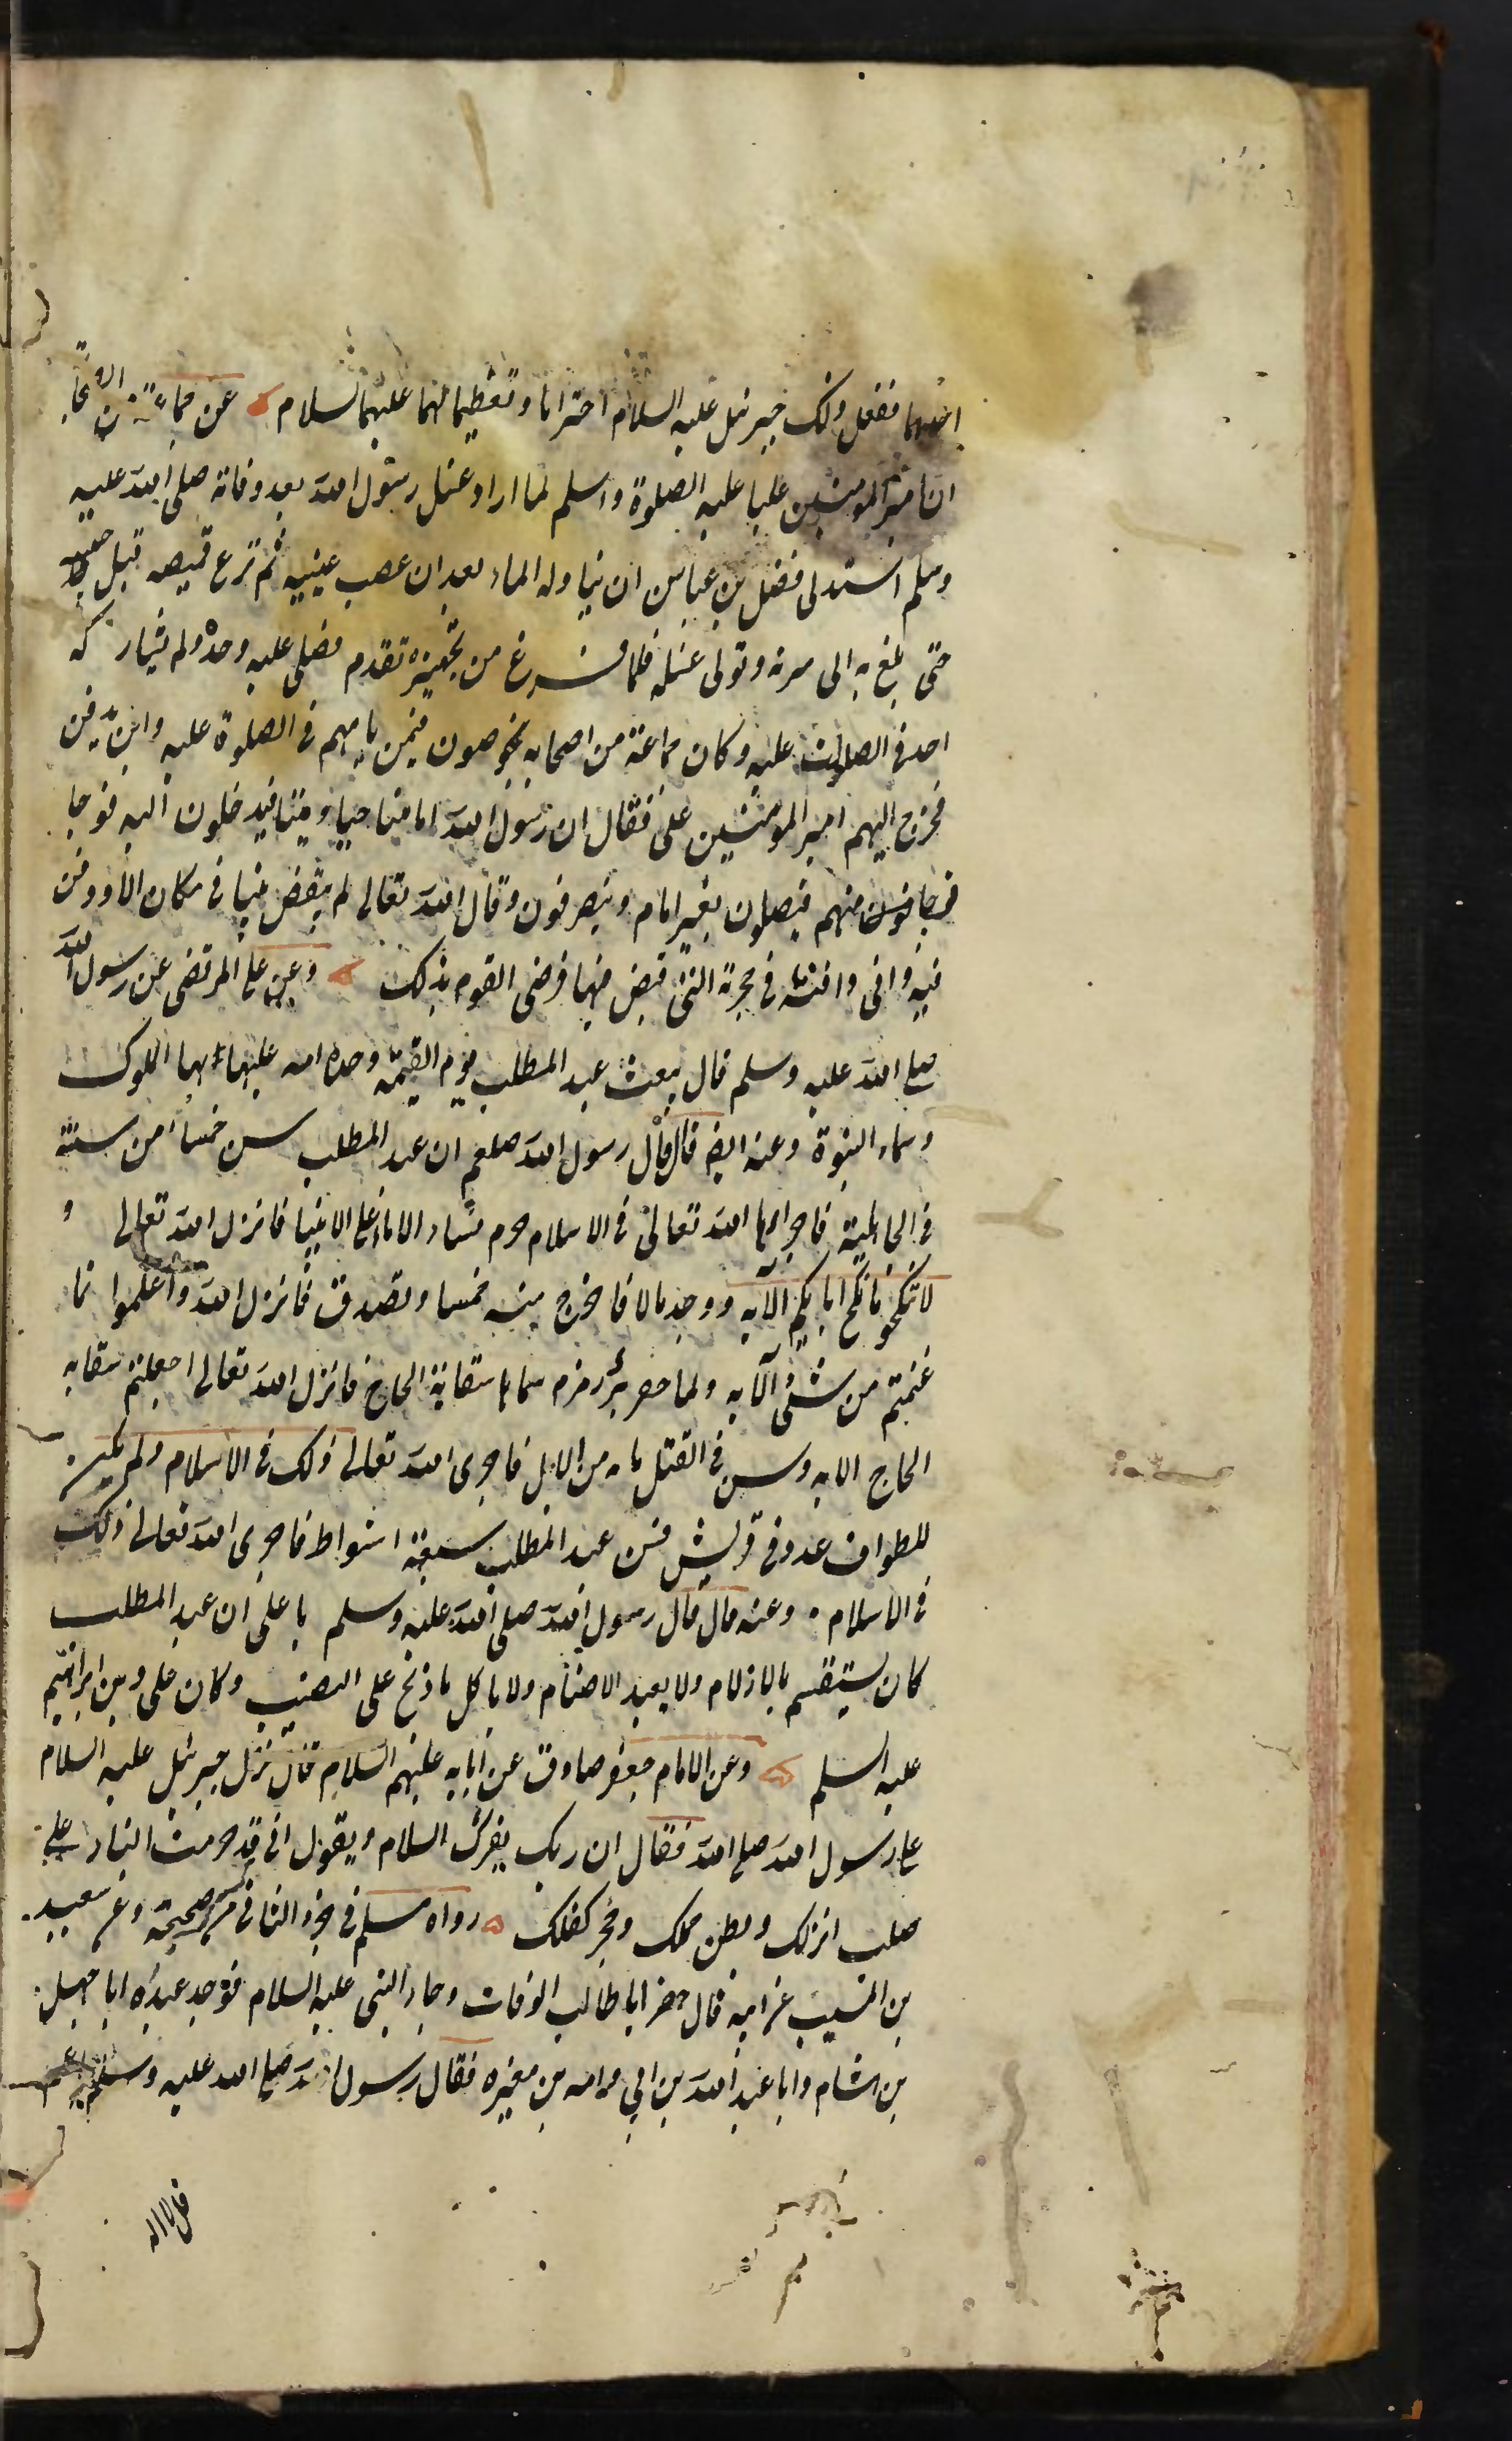 اختهما ففعل ذلك جبرئيل عليه السلام احتراما وتعظيما لهما عليهما السلام عن جماعة من
ان امير المومنين عليا عليه الصلوة واسلم لما اراد غسل رسول الله بعد وفاته صلى الله عليه
وسلم استدلى فضل بن عباس ان يناوله الماء بعد ان عصب عينيه ثم نزع قميصه قبل جيبه
حتى بلغ به الى سرته وتولى غسله فلما فرغ من تجهيزه تقدم فصلى عليه وحده ولم يشاركه
احد فى الصلوات عليه وكان جماعة من اصحابه يخوضون فيمن يامهم فى الصلوة عليه واين يدفن
فخرج اليهم امير المومنين على فقال ان رسول الله امامنا حيا وميتا فيدخلون اليه فوجا
فوجا منهم فيصلون بغير امام وينصرفون وقال الله تعالى لم يقبض نبيا فى مكان الا ودفن
فيه وانى دافنه فى حجرته التى قبض فيها فرضى القوم بذلك وعن على المرتضى عن رسول الله
صلى الله عليه وسلم قال يبعث عبد المطلب يوم القيمة وحده امه عليها بها الملوك
وسماء النبوة وعنه ايض قال قال رسول الله صلعم ان عبد المطلب سن خمسا من سنة
فى الجاهلية فاجراها الله تعالى فى الاسلام حرم نساء الاباء على الابنيا فانزل الله تعالى و
لا تنكحو ما نكح اباىكم الآيه ووجد مالا فاخرج منه خمسا وتصدق فانزل الله واعلموا نما
غنمتم من شئ الآيه ولما حفر بئر زمزم سماها سقاية الحاج فانزل الله تعالى اجعلتم سقايه
الحاج الايه وسن فى القتل مايه من الابل فاجرى الله تعالى ذلك فى الاسلام ولم يكن
للطواف عدد فى قريش فسن عبد المطلب سبعة اشواط فاجرى الله تعالى ذلك
فى الاسلام وعنه قال قال رسول الله صلى الله عليه وسلم يا على ان عبد المطلب
كان يستقسم بالازلام ولا يعبد الاصنام ولا ياكل ما ذبح على النصب وكان على دين ابراهيم
عليه السلم وعن الامام جعفر صادق عن ابايه عليهم السلام قال نزل جبرئيل عليه السلام
على رسول الله صلى الله فقال ان ربك يقرئك السلام ويقول انى قد حرمت النار على
صلب انزلك وبطن حملك وحجر كفلك رواه مسلم فى جزء الثانى من صحيحه وعن سعيد
بن المسيب عن ابيه قال حضر ابا طالب الوفات وجاء النبى عليه السلام فوجد عنده ابا جهل
بن هشام وابا عبد الله بن ابي امه بن مغيره فقال رسول الله صلى الله عليه وسلم يا عم
قل لا اله